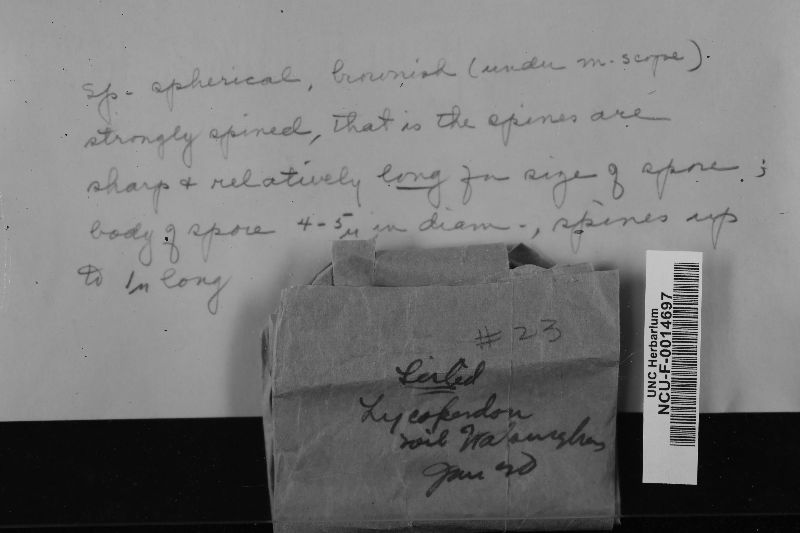 Sp- spherical, brownish (under m. scope)
strongly spined, that is the spines are
sharp + relatively long for size of spore;
body of spore 4-5µ in diam-, spines up
to 1µ long
#23
Lycoperdon
soil
Jan
UNC Herbarium
NCU-F-0014697